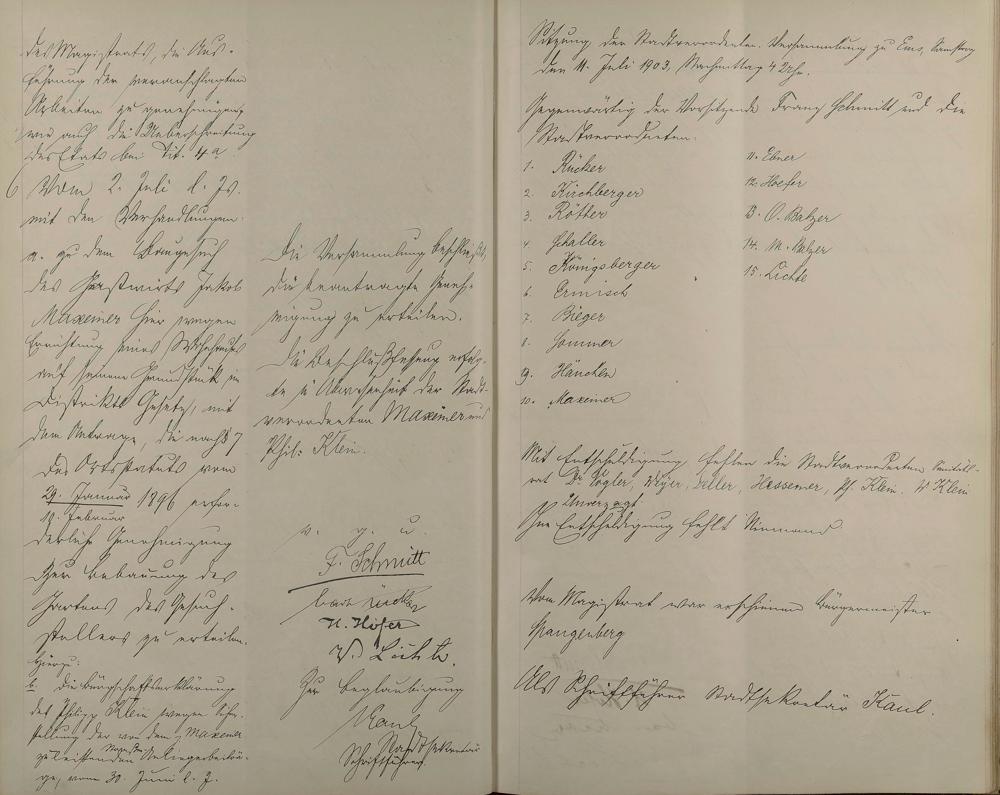 des Magistrats, die Aus-
führung der veranschlagten
Arbeiten zu genehmigen,
wie auch die Ueberschreitung
des Etats bei Tit. 4a
6 Vom 2. Juli l. Js.
mit den Verhandlungen.
a. zu dem Baugesuch
des Gastwirts Jakob
Maxeiner hier wegen
Errichtung eines Wohnhauses
auf seinem Grundstück im
Distrikte, mit
dem Antrage, die nach § 7
des Ortsstatuts vom
29. Januar 1896 erfor-
18. Februar
derliche Genehmigung
zur Bebauung des
Gartens des Gesuch-
stellers zu erteilen.
Hierzu:
b. die Bürgschaftserklärung
des Philipp Klein wegen Sicher-
stellung der von dem Maxeiner
zu leistenden Anliegerbeiträ-
ge, vom 30. Juni l. J.
Die Versammlung beschließt,
die beantragte Geneh-
migung zu erteilen.
Die Beschlußfassung erfolg-
te in Abwesenheit der Stadt-
verordneten Maxeiner und
Phil. Klein.
v. g. u.
F. Schmitt
Carl Rücker
H. Höfer
W. Lichte.
Zur Beglaubigung
Kaul
Stadtsekretär
Schriftführer.
Sitzung der Stadtverordneten-Versammlung zu Ems, Samstag
den 11. Juli 1903, Nachmittag 4 Uhr.
Gegenwärtig der Vorsitzende Franz Schmitt und die
Stadtverordneten:
1. Rücker
2. Kirchberger
3. Rötter
4. Schaller
5. Königsberger
6. Ermisch
7. Bieger
8. Sommer
9. Hänchen
10. Maxeiner
11. Ebner
12. Hoefer
13. O. Balzer
14. M. Balzer
15. Lichte
Mit Entschuldigung fehlen die Stadtverordneten Sanitäts-
rat Dr. Vogler, Weyer, Heller, Hessemer, Ph. Klein, W Klein
Unverzagt
Ohne Entschuldigung fehlt Niemand
Vom Magistrat war erschienen Bürgermeister
Spangenberg
Als Schriftführer Stadtsekretär Kaul.